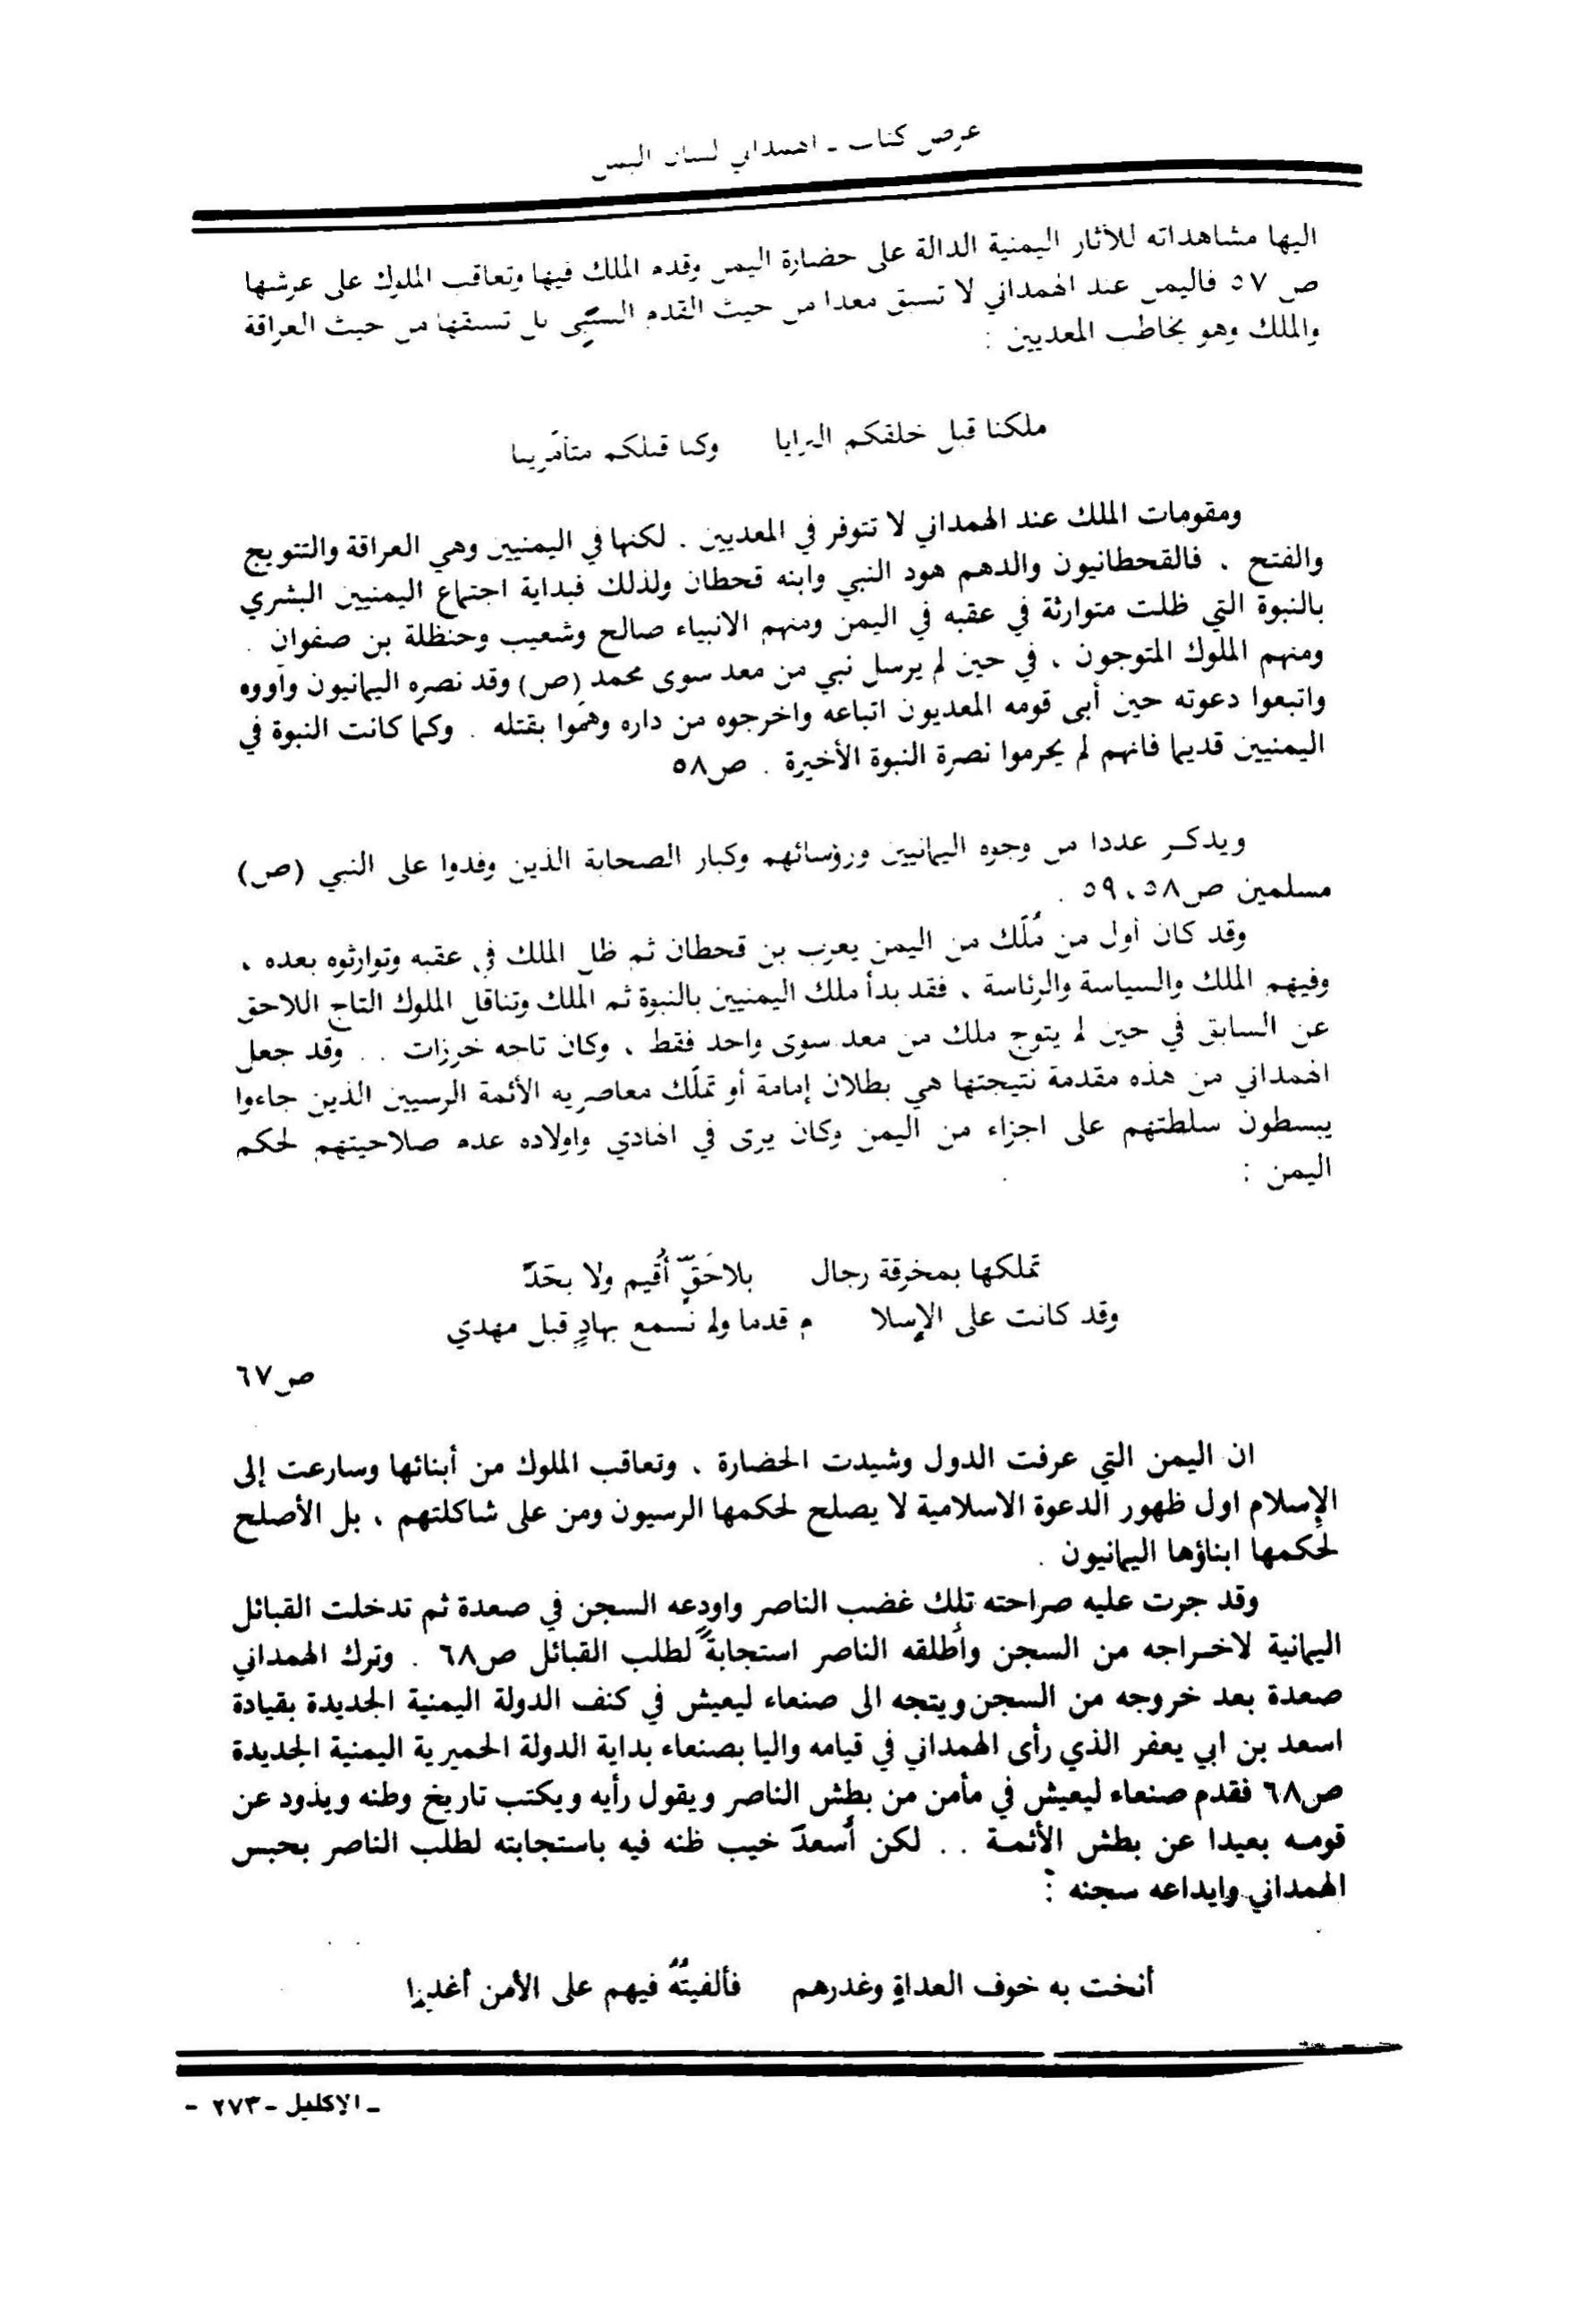 عرض كتاب - الهمداني لسان اليمن
اليها مشاهداته للآثار اليمنية الدالة على حضارة اليمن وقدم الملك فيها وتعاقب الملوك على عرشها
ص ٥٧ فاليمن عند الهمداني لا تسبق معدا من حيث القدم السنّي بل تسبقها من حيث العراقة
والملك وهو يخاطب المعديين :
ملكنا قبل خلقكم البرايا وكنا قبلكم متأمّرينا
ومقومات الملك عند الهمداني لا تتوفر في المعديين . لكنها في اليمنيين وهي العراقة والتتويج
والفتح ، فالقحطانيون والدهم هود النبي وابنه قحطان ولذلك فبداية اجتماع اليمنيين البشري
بالنبوة التي ظلت متوارثة في عقبه في اليمن ومنهم الانبياء صالح وشعيب وحنظلة بن صفوان .
ومنهم الملوك المتوجون ، في حين لم يرسل نبي من معد سوى محمد (ص) وقد نصره اليمانيون وآووه
واتبعوا دعوته حين أبى قومه المعديون اتباعه واخرجوه من داره وهمّوا بقتله . وكما كانت النبوة في
اليمنيين قديما فانهم لم يحرموا نصرة النبوة الأخيرة . ص٥٨
ويذكر عددا من وجوه اليمانيين ورؤسائهم وكبار الصحابة الذين وفدوا على النبي (ص)
مسلمين ص٥٨، ٥٩ .
وقد كان أول من مُلّك من اليمن يعرب بن قحطان ثم ظل الملك في عقبه وتوارثوه بعده ،
وفيهم الملك والسياسة والرئاسة ، فقد بدأ ملك اليمنيين بالنبوة ثم الملك وتناقل الملوك التاج اللاحق
عن السابق في حين لم يتوج ملك من معد سوى واحد فقط ، وكان تاجه خرزات . . وقد جعل
الهمداني من هذه مقدمة نتيجتها هي بطلان إمامة أو تملّك معاصريه الأئمة الرسيين الذين جاءوا
يبسطون سلطتهم على اجزاء من اليمن وكان يرى في الهادي واولاده عدم صلاحيتهم لحكم
اليمن :
تملكها بمخرقة رجال بلا حَقٍّ أُقيم ولا بحَدّ
وقد كانت على الإسلا م قدما ولم نسمع بهادٍ قبل مهدي
ص٦٧
ان اليمن التي عرفت الدول وشيدت الحضارة ، وتعاقب الملوك من أبنائها وسارعت إلى
الإسلام اول ظهور الدعوة الاسلامية لا يصلح لحكمها الرسيون ومن على شاكلتهم ، بل الأصلح
لحكمها ابناؤها اليمانيون .
وقد جرت عليه صراحته تلك غضب الناصر واودعه السجن في صعدة ثم تدخلت القبائل
اليمانية لاخراجه من السجن وأطلقه الناصر استجابةً لطلب القبائل ص٦٨ . وترك الهمداني
صعدة بعد خروجه من السجن ويتجه الى صنعاء ليعيش في كنف الدولة اليمنية الجديدة بقيادة
اسعد بن ابي يعفر الذي رأى الهمداني في قيامه واليا بصنعاء بداية الدولة الحميرية اليمنية الجديدة
ص٦٨ فقدم صنعاء ليعيش في مأمن من بطش الناصر ويقول رأيه ويكتب تاريخ وطنه ويذود عن
قومه بعيدا عن بطش الأئمة . . لكن أسعدَ خيب ظنه فيه باستجابته لطلب الناصر بحبس
الهمداني وايداعه سجنه :
أنخت به خوف العداةِ وغدرهم فألفيتُهُ فيهم على الأمن أغدرا
- الاكليل - ٢٧٣ -